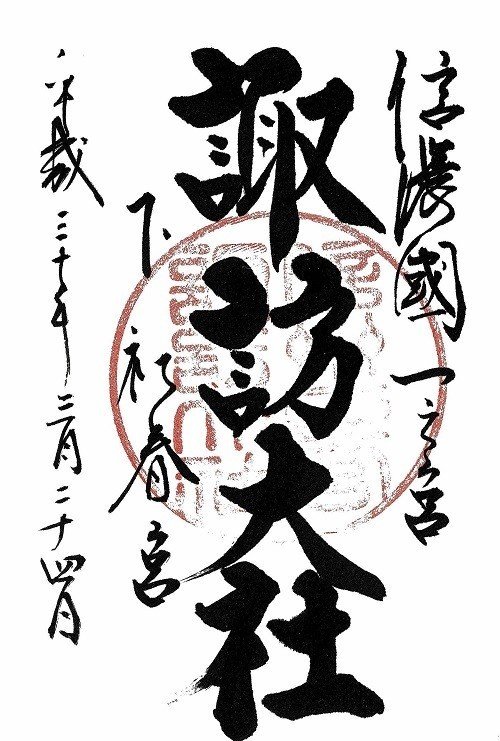 信濃國一之宮
諏訪大社
下社春宮
平成三十年三月二十四日